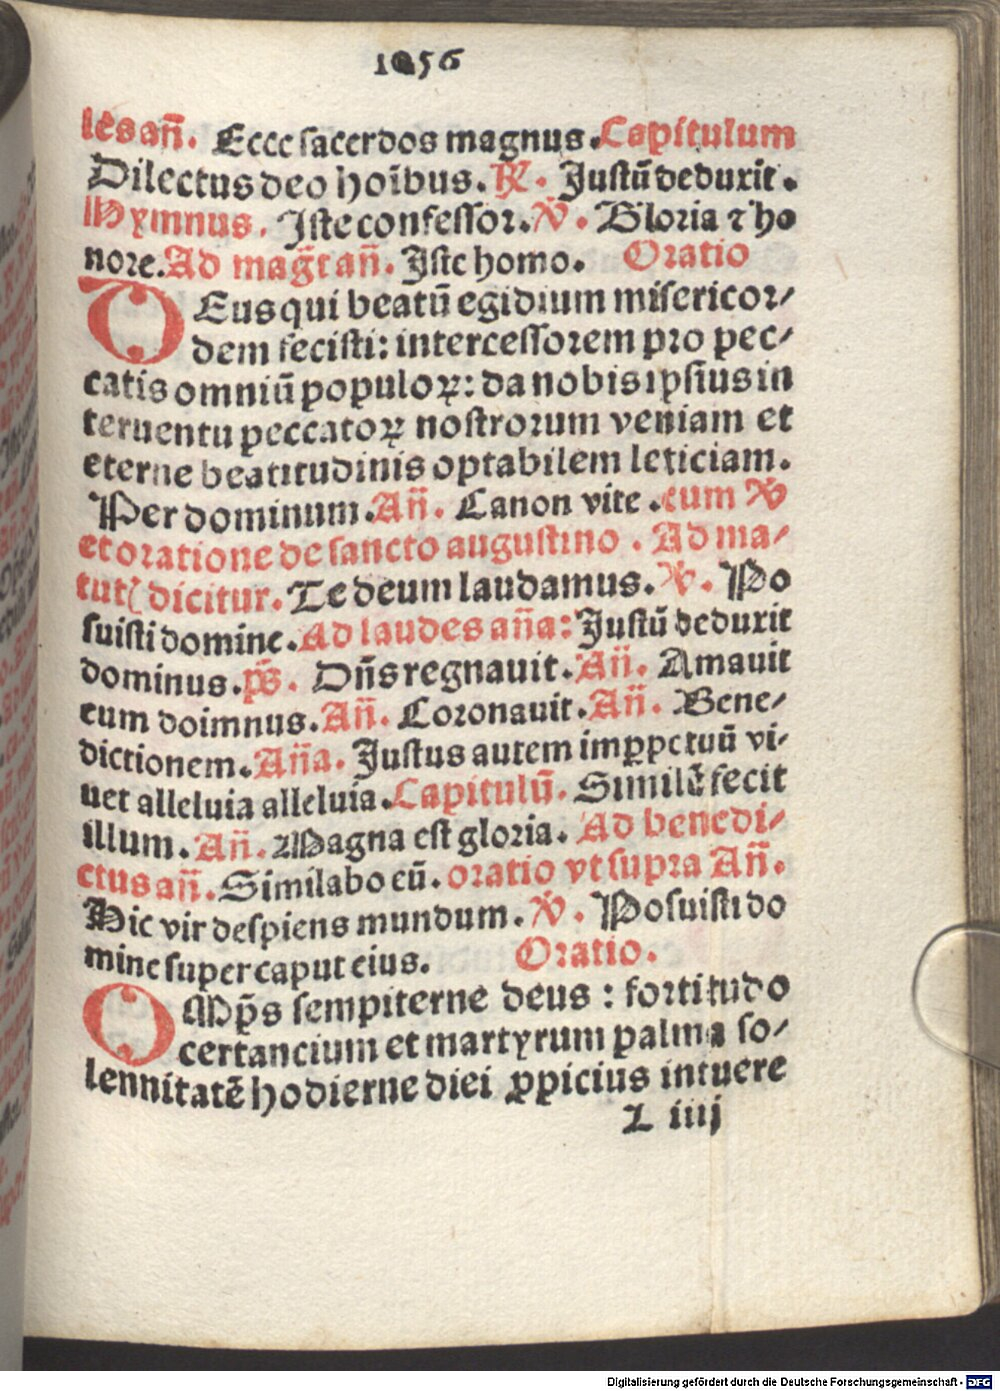 1056
les an̄. Ecce sacerdos magnus. Capitulum
Dilectus deo hoībus. ℟. Justū deduxit.
Hymnus. Iste confessor. ℣. Gloria ⁊ ho
nore. Ad mag̃t an̄. Iste homo. Oratio
DEus qui beatū egidium misericor⸗
dem fecisti: intercessorem pro pec⸗
catis omniū populoꝝ: da nobis ipsius in
teruentu peccatoꝝ nostrorum veniam et
eterne beatitudinis optabilem leticiam.
Per dominum. An̄. Canon vite. cum ℣
et oratione de sancto augustino. Ad ma⸗
tut̃ dicitur. Te deum laudamus. ℣. Po
suisti domine. Ad laudes an̄a: Justū deduxit
dominus. p̄s. Dn̄s regnauit. An̄. Amauit
eum doimnus. An̄. Coronauit. An̄. Bene⸗
dictionem. An̄a. Justus autem im ꝑpetuū vi⸗
uet alleluia alleluia. Capitulū. Similē fecit
illum. An̄. Magna est gloria. Ad benedi⸗
ctus an̄. Similabo eū. oratio vt supra An̄.
Hic vir despiens mundum. ℣. Posuisti do
mine super caput eius. Oratio.
OMp̄s sempiterne deus: fortitudo
certancium et martyrum palma so⸗
lennitatē hodierne diei ꝓpicius intuere
L iiij
Digitalisierung gefördert durch die Deutsche Forschungsgemeinschaft - DFG